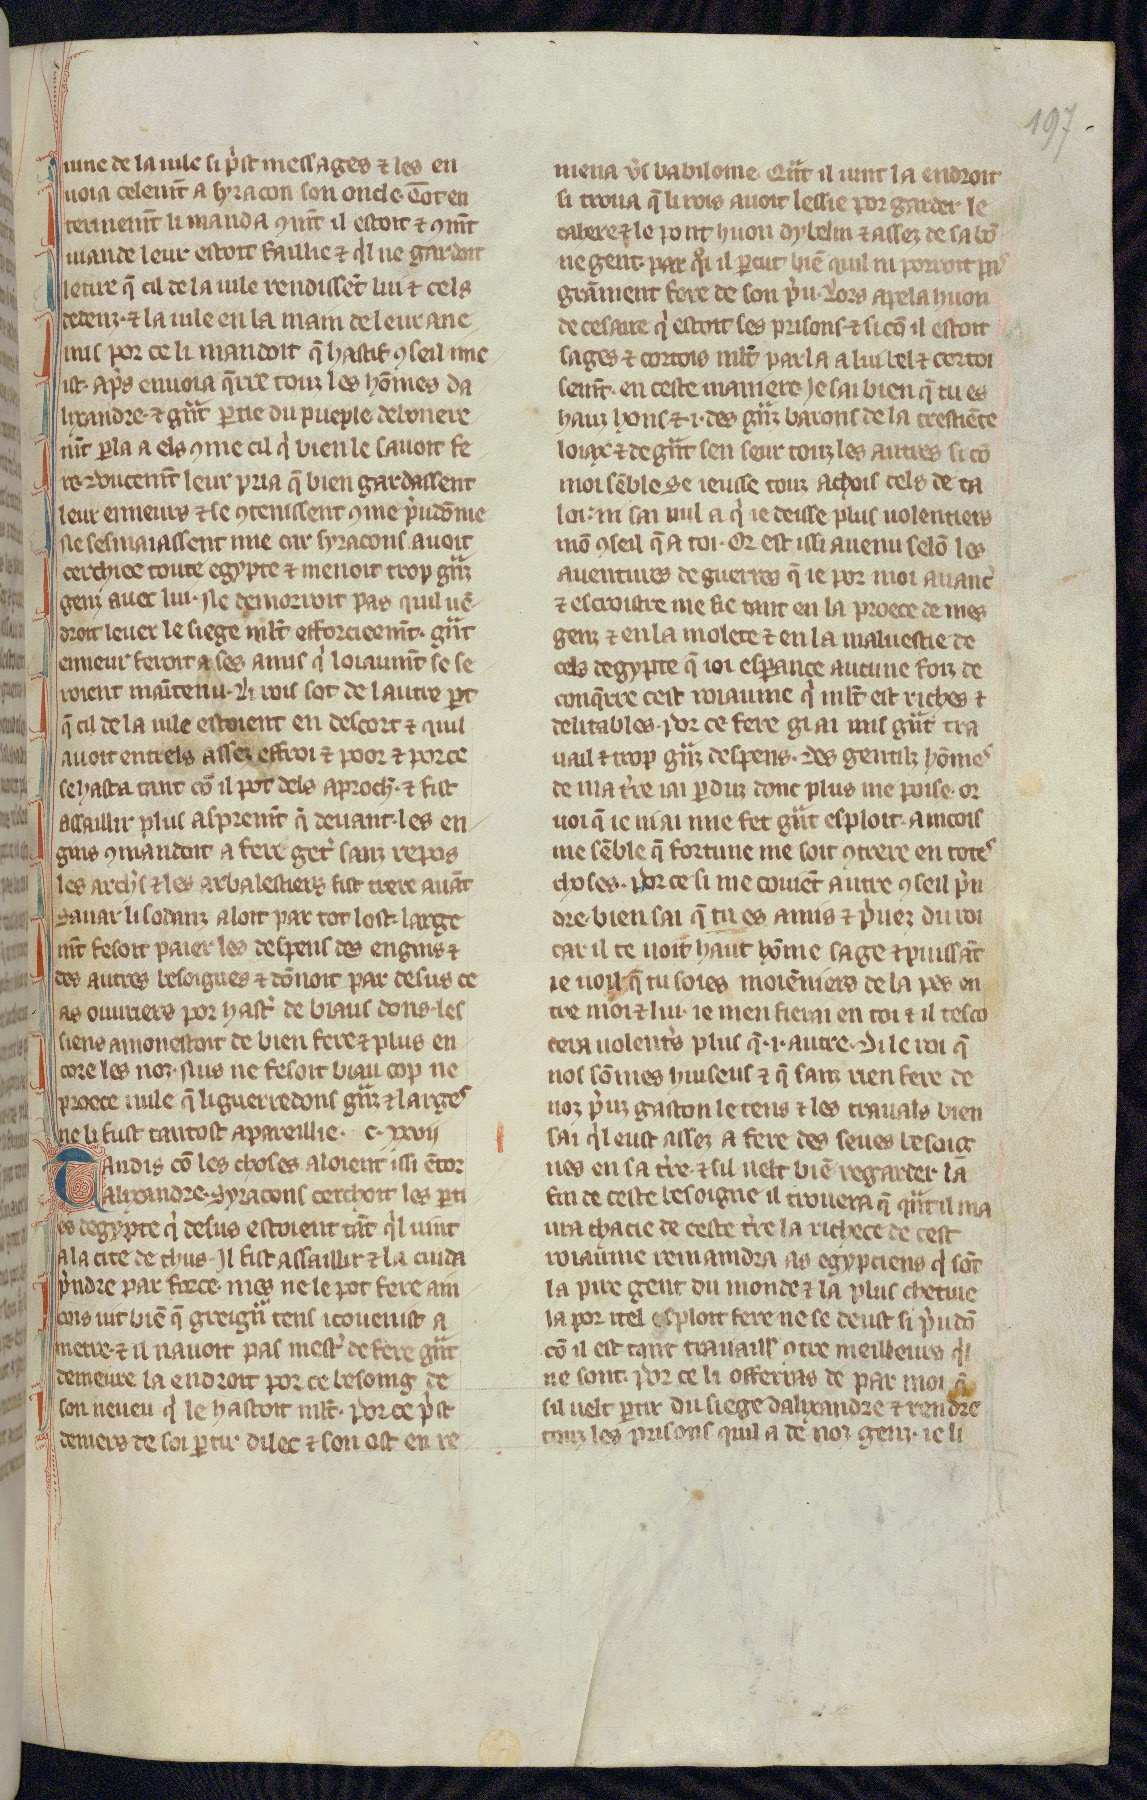 197
mune de la uile si p̾st messages ⁊ les en
uoia celeem̃t a hyracon son oncle. Tot en
terinem̃t li manda ꝯm̃t il estoit ⁊ ꝯm̃t
uiande leur estoit faillie ⁊ q̾l ne gardoit
leure q̃ cil de la uile rendissẽt lui ⁊ cels
dedenz. ⁊ la uile en la main de leur ane
mis por ce li mandoit q̃ hastif ꝯseil me
ist. ap̾s enuoia q̃rre touz les hõmes da
lixandre. ⁊ gñt ꝑtie du pueple debonere
m̃t ꝑla a els ꝯme cil q̾ bien le sauoit fe
re. doucem̃t leur pria q̃ bien gardassent
leur enneurs ⁊ se ꝯtenissent ꝯme p̾udõme
Ne sesmaiassent mie car hyracons auoit
cerchiee toute egypte ⁊ menoit trop gñz
genz auec lui. Ne demorroit pas quil uẽ
droit leuer le siege ml̃t efforcieem̃t. gñt
enneur feroit a ses amis q̾ loiaum̃t se se
roient maĩtenu. Li rois sot de lautre ꝑt
q̃ cil de la uile estoient en descort ⁊ quil
auoit entrels assez effroi ⁊ poor ⁊ por ce
se hasta tant cõ il pot dels aproch̾. ⁊ fist
assaillir plus asprem̃t q̃ deuant. les en
gins ꝯmandoit a fere get̾ sanz repos
les arch̾s ⁊ les arbalestiers fist trere auãt
Sauar li sodanz aloit par tot lost. large
m̃t fesoit paier les despens des engins ⁊
des autres besoignes ⁊ dõnoit par desus ce
as ouuriers por hast̾ de biaus dons. les
siens amonestoit de bien fere ⁊ plus en
core les noz. Nus ne fesoit biau cop ne
proece nule q̃ li guerredons gñz ⁊ larges
ne li fust tantost apareillie. c. xxvij
Tandis cõ les choses aloient issi ẽtor
alixandre. Syracons cerchoit les ꝑti
es degypte q̾ desus estoient tãt q̾l uint
a la cite de chus. Il fist assaillir ⁊ la cuida
p̾ndre par force. mes ne le pot fere ain
cois uit biẽ q̃ greigñ tens i couenist a
metre. ⁊ il nauoit pas mest̾ de fere gñt
demeure la endroit por ce besoing de
son neueu q̾ le hastoit ml̃t. por ce p̾st
deniers de soi ꝑtir dilec ⁊ son ost en re
mena v̾s babiloine. Qñt il uint la endroit
si troua q̃ li rois auoit lessie por garder le
cahere ⁊ le pont huon dybelin ⁊ assez de sa bõ
ne gent. par q̾i il ꝑcut biẽ quil ni porroit pas
grãment fere de son p̾u. Lors apela huon
de cesaire q̾ estoit ses prisons. ⁊ si cõ il estoit
sages ⁊ cortois ml̃t parla a lui bel ⁊ cortoi
sem̃t. en ceste maniere. Je sai bien q̃ tu es
hauz hons ⁊ .i. des gñz barons de la crestiẽte
loiax ⁊ de gñt sen seur touz les autres si cõ
moi sẽble. Se ieusse touz a chois cels de ta
loi: ni sai nul a q̾ ie deisse plus uolentiers
mõ ꝯseil q̃ a toi. Or est issi auenu selõ les
auentures de guerres q̃ ie por moi auanc̾
⁊ escroistre me fie tant en la proece de mes
genz ⁊ en la molete ⁊ en la maluestie de
cels degypte q̃ ioi espance aucune foiz de
conq̃rre cest roiaume q̾ ml̃t est riches ⁊
delitables. por ce fere gi ai mis gñt tra
uail ⁊ trop gñz despens. des gentilz hõmes
de ma t̾re iai ꝑduz donc plus me poise. or
uoi q̃ ie ni ai mie fet gñt esploit. aincois
me sẽble q̃ fortune me soit ꝯtrere en totes
choses. por ce si me couiẽt autre ꝯseil p̾n
dre. bien sai q̃ tu es amis ⁊ p̾uez du roi
car il te uoit haut hõme sage ⁊ puissãt
ie uoil q̃ tu soies moiẽniers de la pes en
tre moi ⁊ lui. ie men fierai en toi ⁊ il tesco
tera uolent̾s plus q̃ .i. autre. Di le roi q̃
nos sõmes huiseus ⁊ q̃ sanz rien fere de
noz p̾uz gaston le tens ⁊ les trauals bien
sai q̾l eust assez a fere des seues besoig
nes en sa t̾re. ⁊ sil uelt biẽ regarder la
fin de ceste besoigne il trouera q̃ qñt il ma
ura chacie de ceste t̾re la richece de cest
roiaume remaindra as egypciens q̾ sõt
la pire gent du monde ⁊ la plus chetiue
la por itel esploit fere ne se deust si p̾udõ
cõ il est tant trauaill̾ ꝯtre meilleurs q̾l
ne sont. por ce li offerras de par moi q̃
sil uelt ꝑtir du siege dalixandre ⁊ rendre
touz les prisons quil a de noz genz. ie li